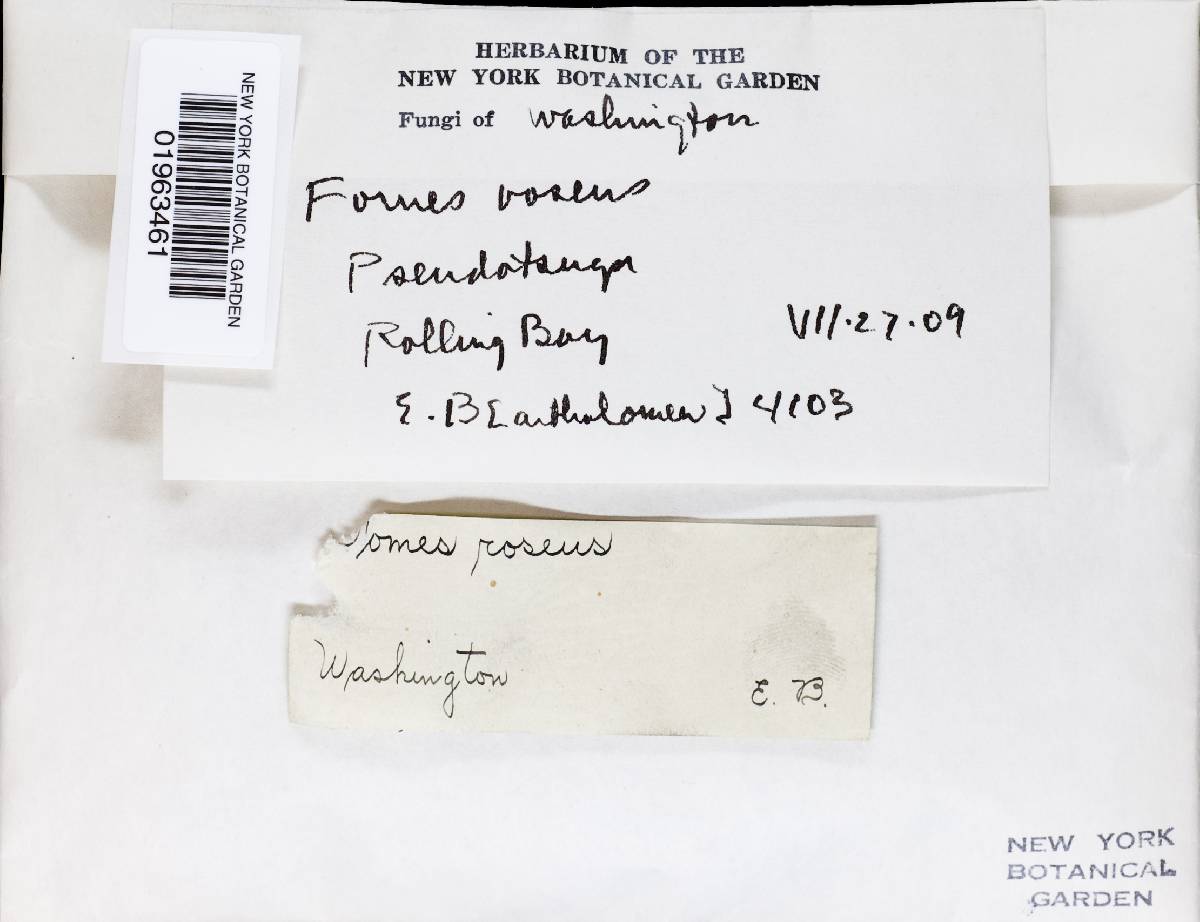 HERBARIUM OF THE
NEW YORK BOTANICAL GARDEN
Fungi of Washington
NEW YORK BOTANICAL GARDEN
01963461
Fomes roseus
Pseudotsuga
Rolling Bay VII·27·09
E. B[artholomew] 4103
Fomes roseus
Washington
E. B.
NEW YORK
BOTANICAL
GARDEN